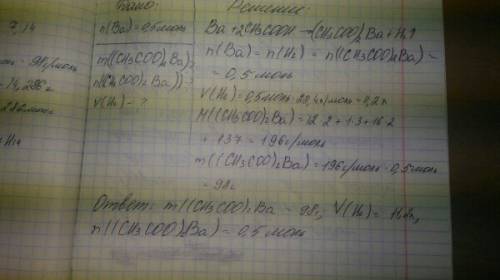 Дано:
Решение:
n(Ba) = 0,5 моль
Ba + 2CH₃COOH → (CH₃COO)₂Ba + H₂↑
m((CH₃COO)₂Ba)
n((CH₃COO)₂Ba)
V(H₂) - ?
n(Ba) = n(H₂) = n((CH₃COO)₂Ba) =
= 0,5 моль
V(H₂) = 0,5 моль · 22,4 л/моль =
M((CH₃COO)₂Ba) = 12·2 + 1·3 + 16·2
+ 137 = 196 г/моль
m((CH₃COO)₂Ba) = 196 г/моль · 0,5 моль
= 98 г
Ответ: m((CH₃COO)₂Ba = 98 г, V(H₂) =
n((CH₃COO)₂Ba) = 0,5 моль